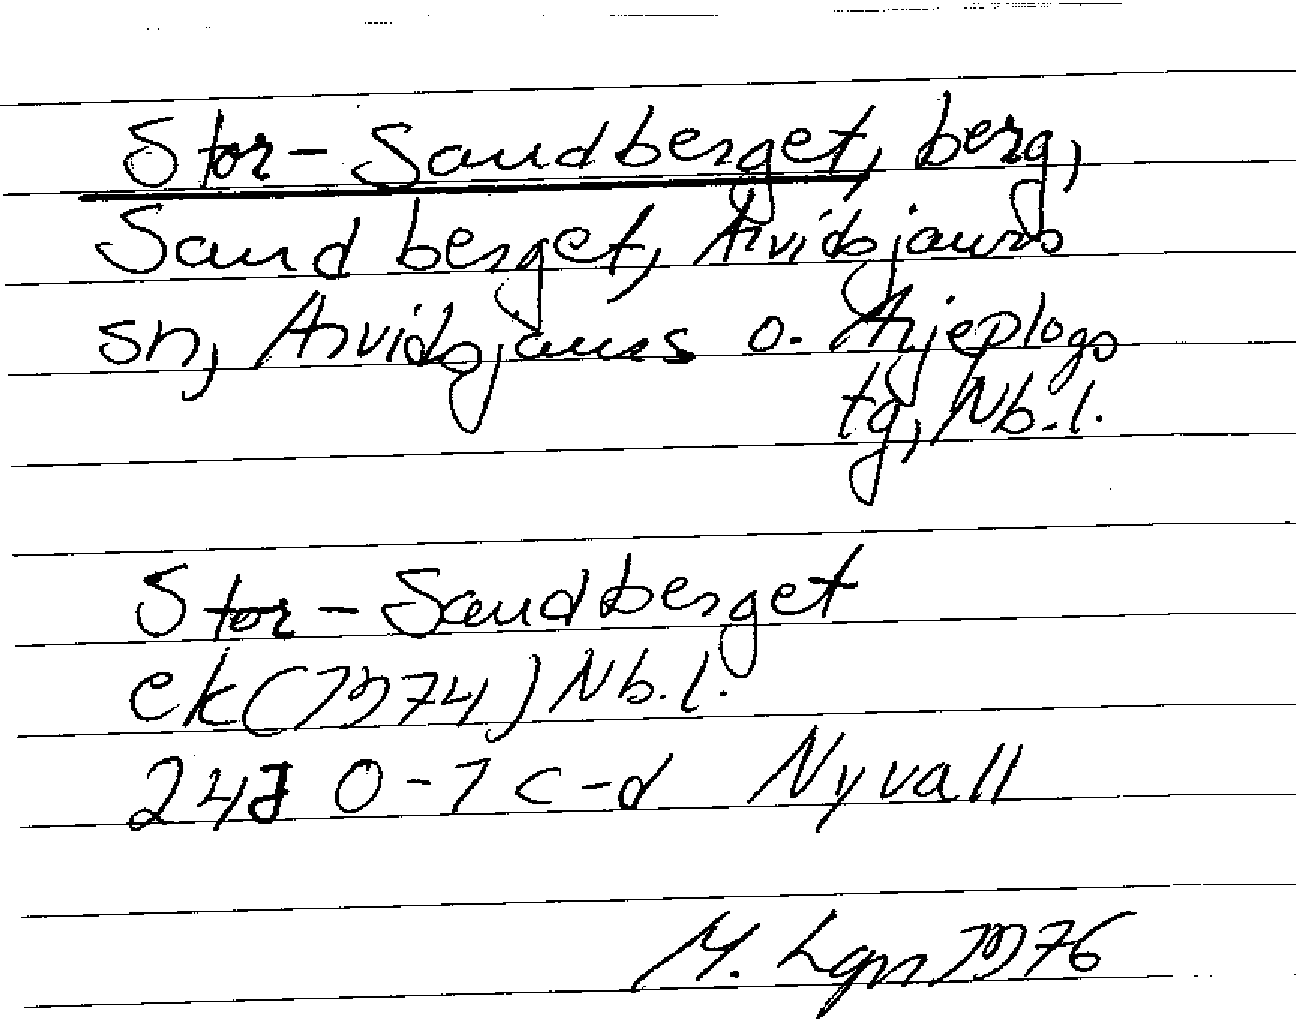 Stor-Sandberget, berg,
Sandberget, Arvidsjaurs
sn, Arvidsjaurs o. Arjeplogs
tg, Nb.l.
Stor-Sandberget
ek(1974) Nb.l.
24J 0-1 c-d Nyvall
M. Lgn 1976